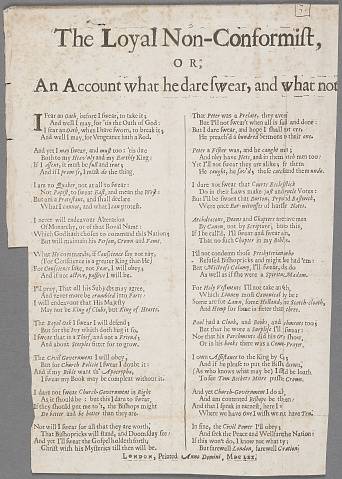 The Loyal Non-Conformist,
OR;
An Account what he dare swear, and what not
I Fear an Oath, before I swear, to take it;
And well I may, for 'tis the Oath of God:
I fear an Oath, when I have sworn, to break it;
And well I may, for Vengeance hath a Rod.
And yet I may swear, and must too: 'tis due
Both to my Heav'nly and my Earthly King:
If I assent, it must be full and true;
And if I promise, I must do the thing.
I am no Quaker, not at all to swear:
Nor Papist, to swear East, and mean the West:
But am a Protestant, and shall declare
What I cannot, and what I can protest.
I never will endeavour Alteration
Of Monarchy, or of that Royal Name:
Which God hath chosen to command this Nation;
But will maintain his Person, Crown and Fame.
What He commands, if Conscience say not nay,
(For Conscience is a greater King than He)
For Conscience sake, not Fear, I will obey;
And if not active, passive I will be.
I'll pray, That all his Subjects may agree,
And never more be crumbled into Parts:
I will endeavour that His Majesty
May not be King of Clubs, but King of Hearts.
The Royal Oak I swear I will defend;
But for the Ivy which doth hug it so,
I swear that is a Thief, and not a Friend;
And about Steeples fitter for to grow.
The Civil Government I will obey;
But for Church-Policie I swear I doubt it:
And if my Bible want th' Apocrypha,
I swear my Book may be compleat without it.
I dare not swear Church-Government is right
As it should be: but this I dare to swear,
If they should put me to't, the Bishops might
Do better, and be better than they are.
Nor will I swear for all that they are worth,
That Bishopricks will stand, and Doomsday see:
And yet I'll swear the Gospel holdeth forth,
Christ with his Mysteries till then will be.
That Peter was a Prelate, they aver;
But I'll not swear't when all is said and done:
But I dare swear, and hope I shall not err,
He preach'd a hundred Sermons to their one.
Peter a Fisher was, and he caught men:
And they have Nets, and in them catch men too:
Yet I'll not swear they are alike; for them
He caught, he sav'd; these catch and them undo.
I dare not swear that Courts Ecclesiastick
Do in their Laws make just and gentle Votes:
But I'll be sworn that Burton, Prynne and Bastwick,
Were once Ear-witnesses of harsher Notes.
Archdeacons, Deans and Chapters are brave men
By Canon, not by Scripture: but to this,
If I be call'd, I'll swear and swear agen,
That no such Chapter in my Bible is.
I'll not condemn those Presbyterians who
Refused Bishopricks and might have had 'em:
But Mistress Calamy, I'll swear, doth do
As well as if she were a Spiritual Madam.
For Holy Vestments I'll not take an Oath,
Which Linnen most Canonical may be:
Some are for Lawn, some Holland, some Scotch-cloath;
And Hemp for some is fitter than all three.
Paul had a Cloak, and Books, and Parchments too;
But that he wore a Surplice I'll not swear:
Nor that his Parchments did his Orders show,
Or in his Books there was a Common-Prayer.
I own Assistance to the King by Oath;
And if he please to put the Bishops down,
(As who knows what may be) I should be loath
To see Tom Beckets Mitre push the Crown.
And yet Church-Government I do allow,
And am contented Bishops be the men:
And that I speak in earnest, here I vow
Where we have One, I wish we might have Ten.
In fine, the Civil Power I'll obey,
And seek the Peace and Welfare of the Nation:
If this won't do, I know not what to say;
But farewell London, farewell Corporation.
LONDON, Printed Anno Domini, MDCLXX.